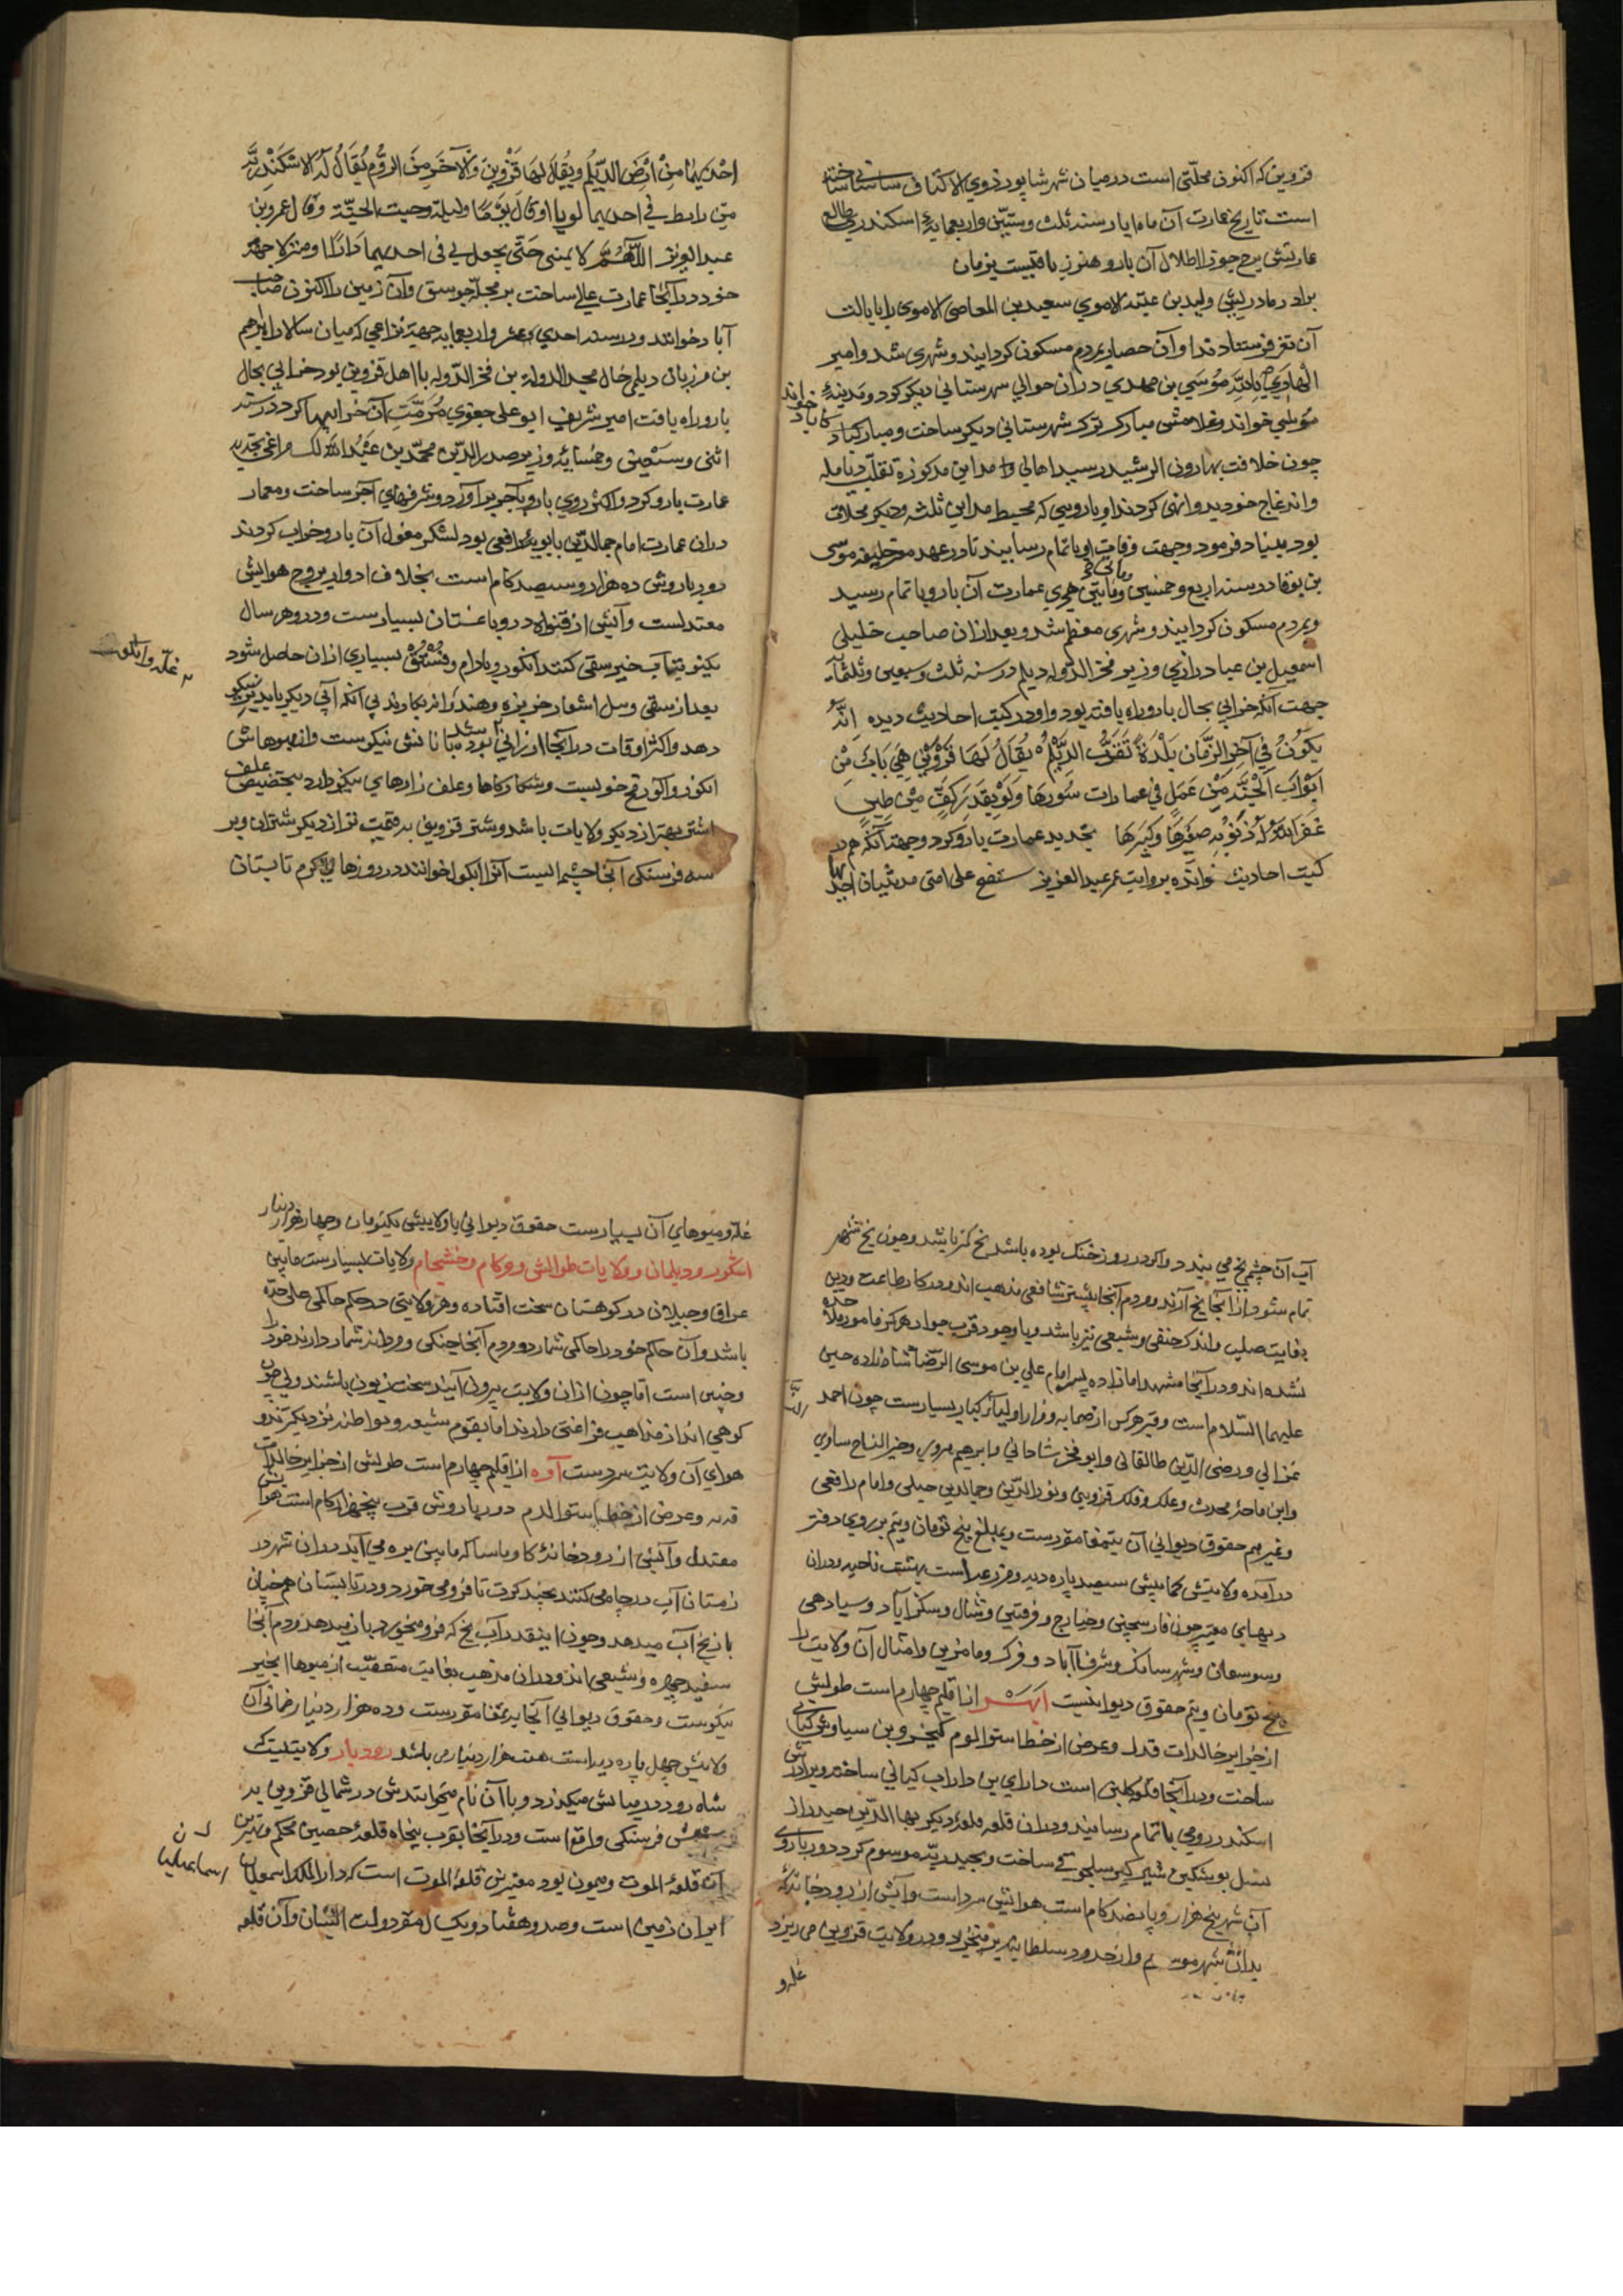 قزوین که اکنون محلتی است در میان شهر شاپور ذوی الاکتاف ساسانی ساخته
است تاریخ عمارت آن ماه ایار سنه ثلث وستین واربعمایه اسکندری طالع
عمارتش برج جوزا اطلال آن بارو هنوز باقیست بزمان
برادر مادریش ولید بن عتبه الاموی سعید بن العاصی الاموی را بایالت
آن ثغر فرستادند او آن حصار بمردم مسکون کردانید و شهری شد و امیر
الهادی بالله موسی بن مهدی در ان حوالی شهرستانی دیکر کرد و مدینهٔ
موسی خواند و غلامش مبارک ترک شهرستانی دیکر ساخت و مبارکاباد خواند
چون خلافت بهارون الرشید رسید اهالی مداین مذکوره تغلب دیالمه
و اندعاج خود بدو انهی کردند او بارویی که محیط مداین ثلثه و دیکر محلات
بود بنیاد فرمود و جهت وفات او باتمام رسانیدند تا در عهد معتز خلیفه موسی
بن بوقا در سنه اربع وخمسین ومایتین هجری عمارت آن بارو باتمام رسید
و بمردم مسکون کردانیدند و شهری معظم شد و بعد از ان صاحب جلیل
اسمعیل بن عباد رازی وزیر فخر الدوله دیلم در سنه ثلث وسبعین وثلثمایه
جهت آنکه خرابی بحال بارو راه یافته بود و او در کتب احادیث دیده انه
یکون فی آخر الزمان بلدة تقرب الدیلم یقال لها قزوین هی باب من
ابواب الجنة من عمل فی عمارات سورها ولو بقدر کف من طین
غفر الله له ذنوبه صغیرها وکبیرها تجدید عمارت بارو کرد و جهت آنکه هم در
کتب احادیث خوانده بروایت عمر عبد العزیز ستفتح علی امتی مدینتان
احدیهما من ارض الدیلم ویقال لها قزوین والآخر من الروم یقال له الاسکندریة
من رابط فی احدیهما لو یوما او قال یوما ولیلة وجبت الجنة وقال عمر بن
عبد العزیز اللهم لا یمتنی حتی یجعل لی فی احدیهما دارا او منزلا جهت
خود در آنجا عمارت عالی ساخت بر محله جوسق و آن زمین را اکنون صاحب
آباد خوانند و در سنه احدی عشر واربعمایه جهة نزاعی که میان سالار ابراهیم
بن مرزبان دیلمی خال مجد الدوله بن فخر الدوله با اهل قزوین بود خرابی بحال
بارو راه یافت امیر شریف ابو علی جعفری مرمت آن خرابیها کرد در سنه
اثنی وسبعین وخمسمایه وزیر صدر الدین محمد بن عبد الله مراغی تجدید
عمارت بارو کرد و اکثر روی بارو بآجر برآورد و شرفهای آجر ساخت و معمار
در ان عمارت امام جمال الدین بابویه رافعی بود لشکر مغول آن بارو خراب کردند
دور باروش ده هزار و سیصد کام است بخلاف ادوار بروج هوایش
معتدلست و آبش از قنوات و در و باغستان بسیارست و در هر سال
یکنوبت بآب خیز سقی کنند انکور و بادام و فستق بسیاری از ان حاصل شود
بعد از سقی وسل اشعار خربزه و هندوانه بکارند بی آنکه آبی دیکر یابد
دهد و اکثر اوقات در آنجا ارزانی بود نانش نیکوست و از میوهاش
انکور و آلوزخم خوبست و شکارکاها و علف زارهای نیکو دارد بتخصیص علف
اشتر بهتر از دیکر ولایات باشد و شتر قزوین بقیمت تر از دیکر شتران و بر
سه فرسنکی آنجا چشمه ایست آنرا انکول خوانند در روزهای کرم تابستان
غله و انکور
آب آن چشمه یخ می بندد و اکر در روز خنک بوده باشد یخ کمتر باشد و چون یخ شهر
تمام شود از آنجا یخ آرند و مردم آنجا بیشتر شافعی مذهب اند و در کار طاعت و دین
بغایت صلب و اندک حنفی و شیعی نیز باشند و با وجود قرب جوار هرکز مامور ملاحده
نشده اند و در آنجا مشهد امام زاده پسر امام علی بن موسی الرضا شاهزاده حسین
علیهما السلام است و قبر هر کس از صحابه و مزار اولیا کبار بسیارست چون احمد
غزالی و رضی الدین طالقانی و ابو بکر شاحانی و ابراهیم هروی و خیر النساج سامری
و ابن ماجه محدث و علک و فلک قزوینی و نور الدین و جمال الدین جیلی و امام رافعی
و غیرهم حقوق دیوانی آن بتمغا مقررست و بمبلغ پنج تومان و نیم بر روی دفتر
در آمده ولایتش کمابیش سیصد پاره دیه و مزرعه است بهشت ناحیه و در ان
دیهای معتبر چون فارسجین و خیارج و قرقسین و شال و سکزآباد و سیادهن
و سوسعان و شهرسانک و شرف آباد و فرک و مامزین و امثال آن ولایت را
پنج تومان و نیم حقوق دیوانیست ابهر از اقلیم چهارم است طولش
از جزایر خالدات فدل و عرض از خط استوا لوم کیخسرو بن سیاوش کیانی
ساخت و در آنجا قلعه کلین است دارای بن داراب کیانی ساخت و برادرش
اسکندر رومی باتمام رسانید و در ان قلعه قلعهٔ دیکر بهاء الدین حیدر از
نسل نوشتکین شیرکیر سلجوقی ساخت و بحیدریه موسوم کرد دور باروی
آن شهر پنج هزار و پانصد کام است هوایش سردست و آبش از رودخانهٔ که
بدان شهر موسوم و از حدود سلطانیه بر میخیزد و در ولایت قزوین می ریزد
غله و
غله و میوهای آن بسیارست حقوق دیوانی با ولایتش یکتومان و چهار هزار دینار
اشکور و دیلمان و ولایات طوالش و وکام و خشتجام ولایات بسیارست مابین
عراق و جیلان در کوهستان سخت افتاده و هر ولایتی در حکم حاکمی علی حده
باشد و آن حاکم خود را حاکمی شمارد و مردم آنجا جنکی و مردانه شمار دارند خود را
و چنین است اما چون از ان ولایت بیرون آیند سخت زبون باشند ولی چون
کوهی اند از مذاهب فراغتی دارند اما بقوم شیعه و بواطنه نزدیکترند و
هوای آن ولایت سردست آوه از اقلیم چهارم است طولش از جزایر خالدات
فدبه و عرض از خط استوا لدم دور باروش قرب پنج هزار کام است هوایش
معتدل و آبش از رودخانهٔ کاوماسا که مابین بره می آید و در ان شهر در
زمستان آب در چاه می کنند بچند کرت تا فرو می خورد و در تابستان همچنان
باز یخ آب میدهد و چون اینقدر آب یخ که فرو میخورد باز میدهد مردم آنجا
سفید چهره و شیعی اند و در ان مذهب بغایت متعصب از میوها انجیر
نیکوست و حقوق دیوانی آنجا بتمغا مقررست و ده هزار دینار ضمانی آن
ولایتش چهل پاره دیه است هفت هزار دینار می باشد رودبار ولایتیست
شاه رود در میانش میکذرد و بآن نام میخوانندش در شمالی قزوین بر
شش فرسنکی واقع است و در آنجا بقرب پنجاه قلعهٔ حصین محکم و بهترین
آن قلعهٔ الموت و میمون بود معتبرترین قلعهٔ الموت است که دار الملک اسمعیلیان
ایران زمین است و صد و هفتاد و یکسال مقر دولت ایشان و آن قلعه